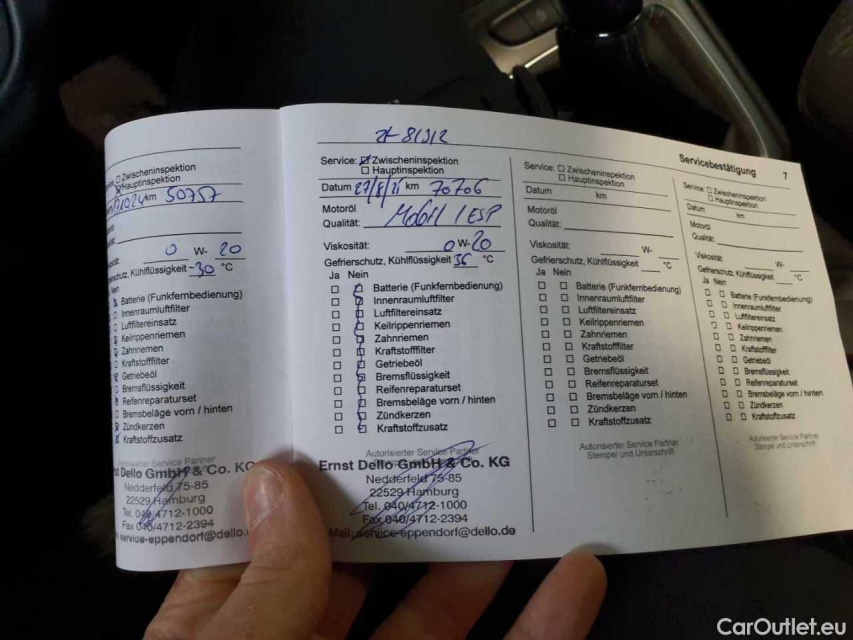 Servicebestätigung 7
Zwischeninspektion
Hauptinspektion
km 50757
0 W- 20
Gefrierschutz, Kühlflüssigkeit -30 °C
Batterie (Funkfernbedienung)
Innenraumluftfilter
Luftfiltereinsatz
Keilrippenriemen
Zahnriemen
Kraftstofffilter
Getriebeöl
Bremsflüssigkeit
Reifenreparaturset
Bremsbeläge vorn / hinten
Zündkerzen
Kraftstoffzusatz
Autorisierter Service Partner
Dello GmbH & Co. KG
Nedderfeld 75-85
22529 Hamburg
Tel. 040/4712-1000
Fax 040/4712-2394
service-eppendorf@dello.
Service: Zwischeninspektion
Hauptinspektion
Datum km 70706
Motoröl
Qualität: Mobil 1 ESP
Viskosität: 0 W- 20
Gefrierschutz, Kühlflüssigkeit °C
Ja Nein
Batterie (Funkfernbedienung)
Innenraumluftfilter
Luftfiltereinsatz
Keilrippenriemen
Zahnriemen
Kraftstofffilter
Getriebeöl
Bremsflüssigkeit
Reifenreparaturset
Bremsbeläge vorn / hinten
Zündkerzen
Kraftstoffzusatz
Autorisierter Service Partner
Ernst Dello GmbH & Co. KG
Nedderfeld 75-85
22529 Hamburg
Tel. 040/4712-1000
Fax 040/4712-2394
Mail: service-eppendorf@dello.de
Service: Zwischeninspektion
Hauptinspektion
Datum km
Motoröl
Qualität:
Viskosität: W-
Gefrierschutz, Kühlflüssigkeit °C
Ja Nein
Batterie (Funkfernbedienung)
Innenraumluftfilter
Luftfiltereinsatz
Keilrippenriemen
Zahnriemen
Kraftstofffilter
Getriebeöl
Bremsflüssigkeit
Reifenreparaturset
Bremsbeläge vorn / hinten
Zündkerzen
Kraftstoffzusatz
Autorisierter Service Partner
Stempel und Unterschrift
Service: Zwischeninspektion
Hauptinspektion
Datum km
Motoröl
Qualität:
Viskosität: W-
Gefrierschutz, Kühlflüssigkeit °C
Ja Nein
Batterie (Funkfernbedienung)
Innenraumluftfilter
Luftfiltereinsatz
Keilrippenriemen
Zahnriemen
Kraftstofffilter
Getriebeöl
Bremsflüssigkeit
Reifenreparaturset
Bremsbeläge vorn / hinten
Zündkerzen
Kraftstoffzusatz
Autorisierter Service Partner
Stempel und Unterschrift
CarOutlet.eu